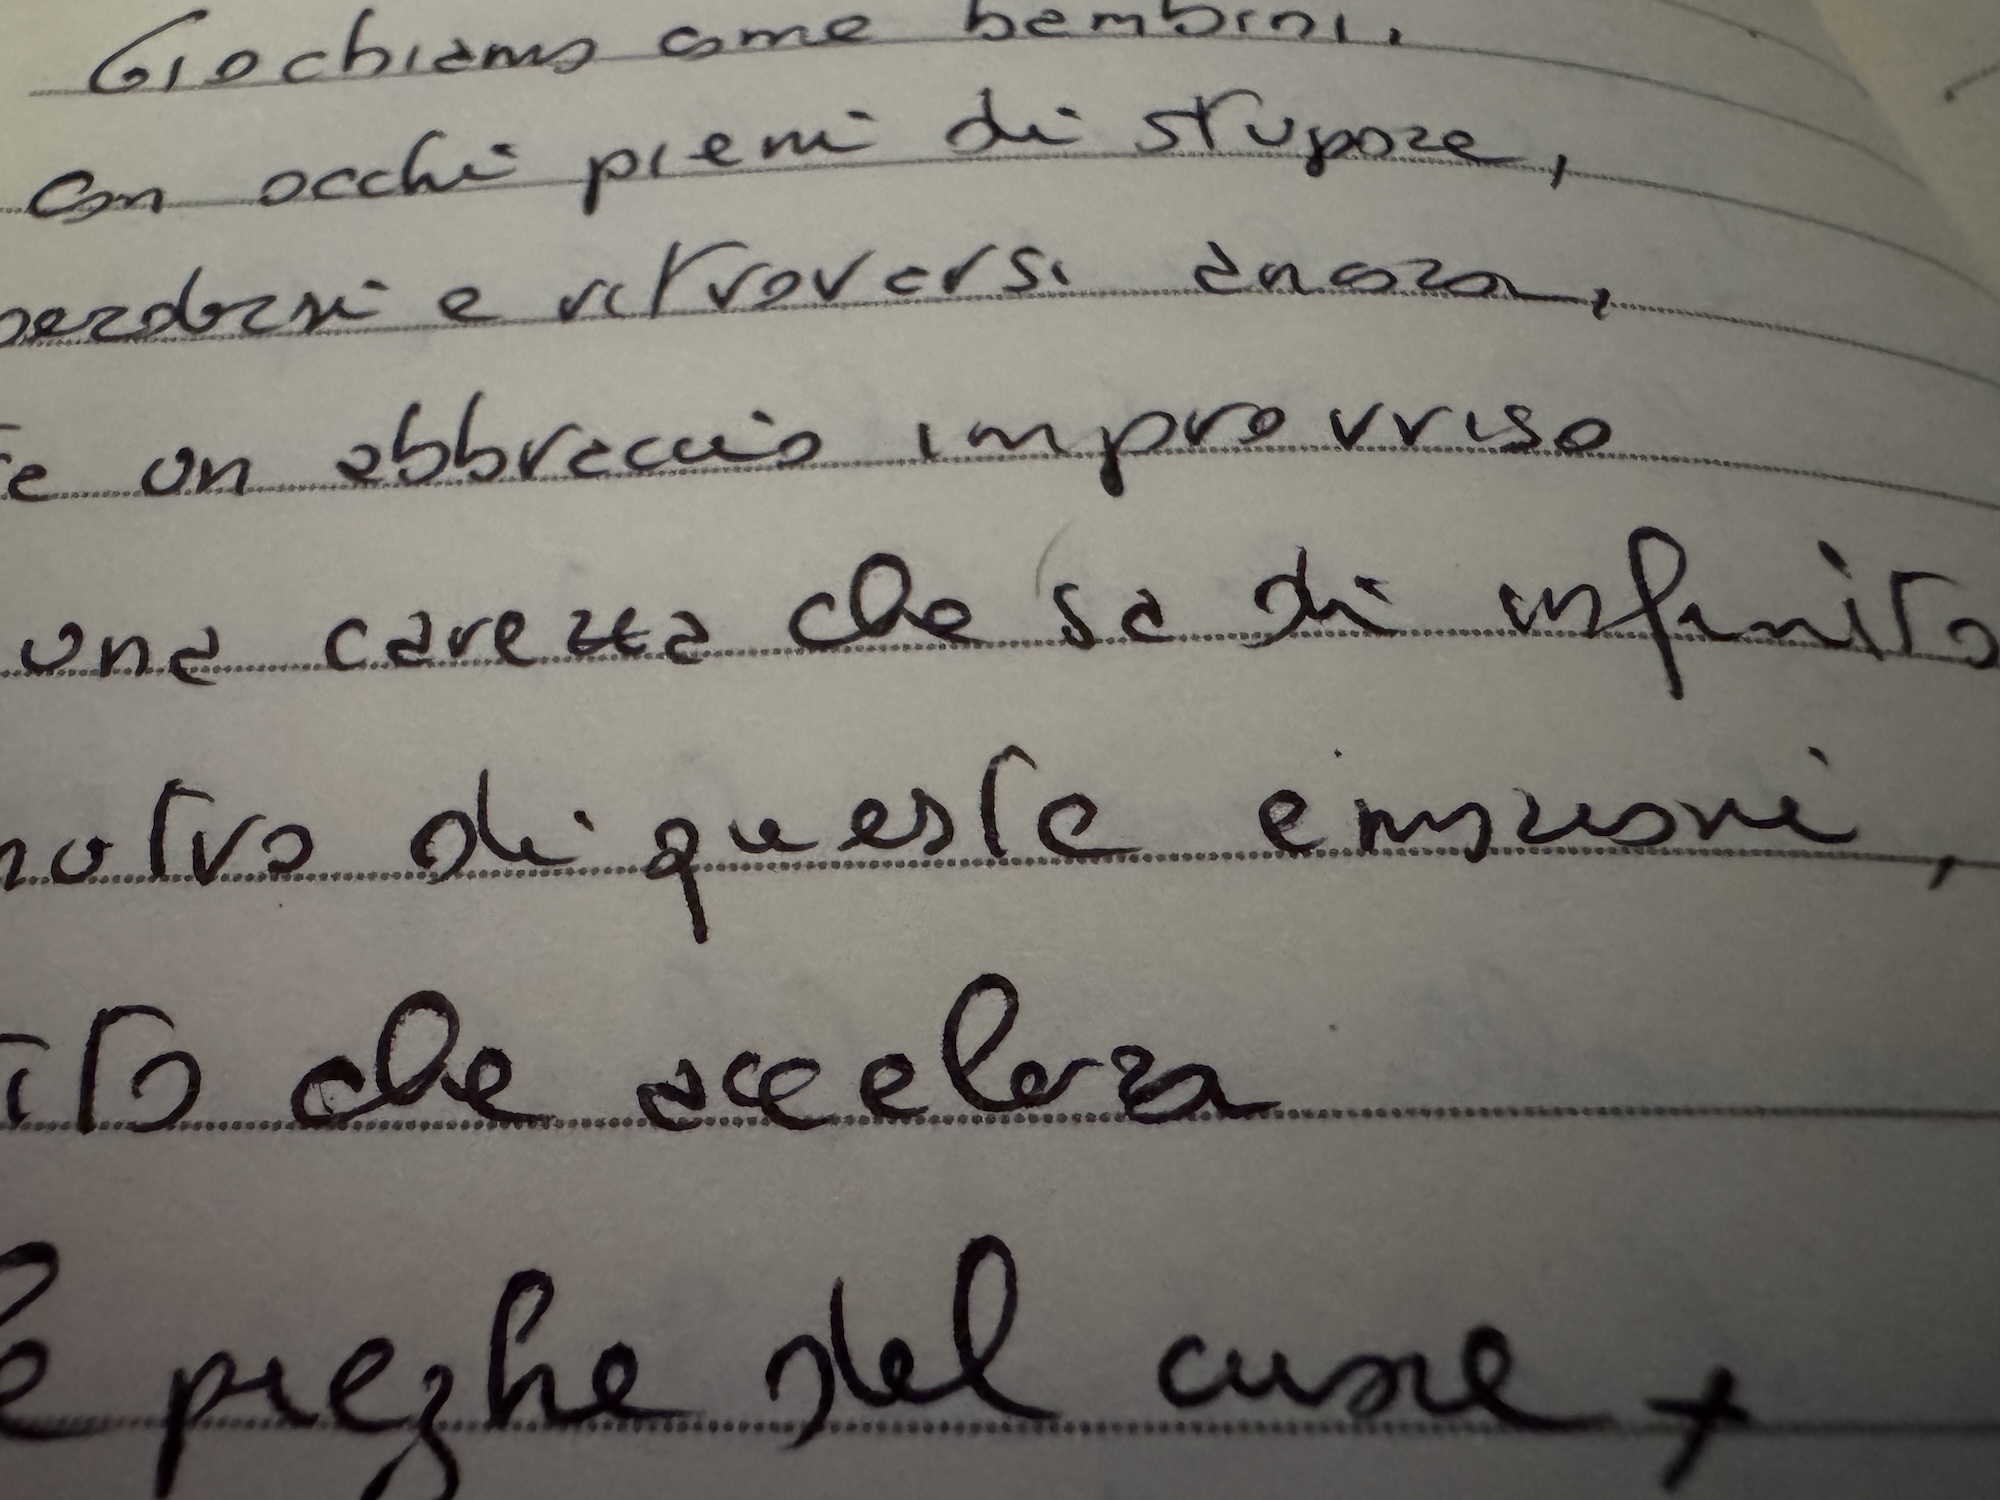 Giochiamo come bambini,
con occhi pieni di stupore,
perdersi e ritroversi ancora,
un abbraccio improvviso
una carezza che sa di infinito
di queste emozioni,
che accelera
pieghe del cuore